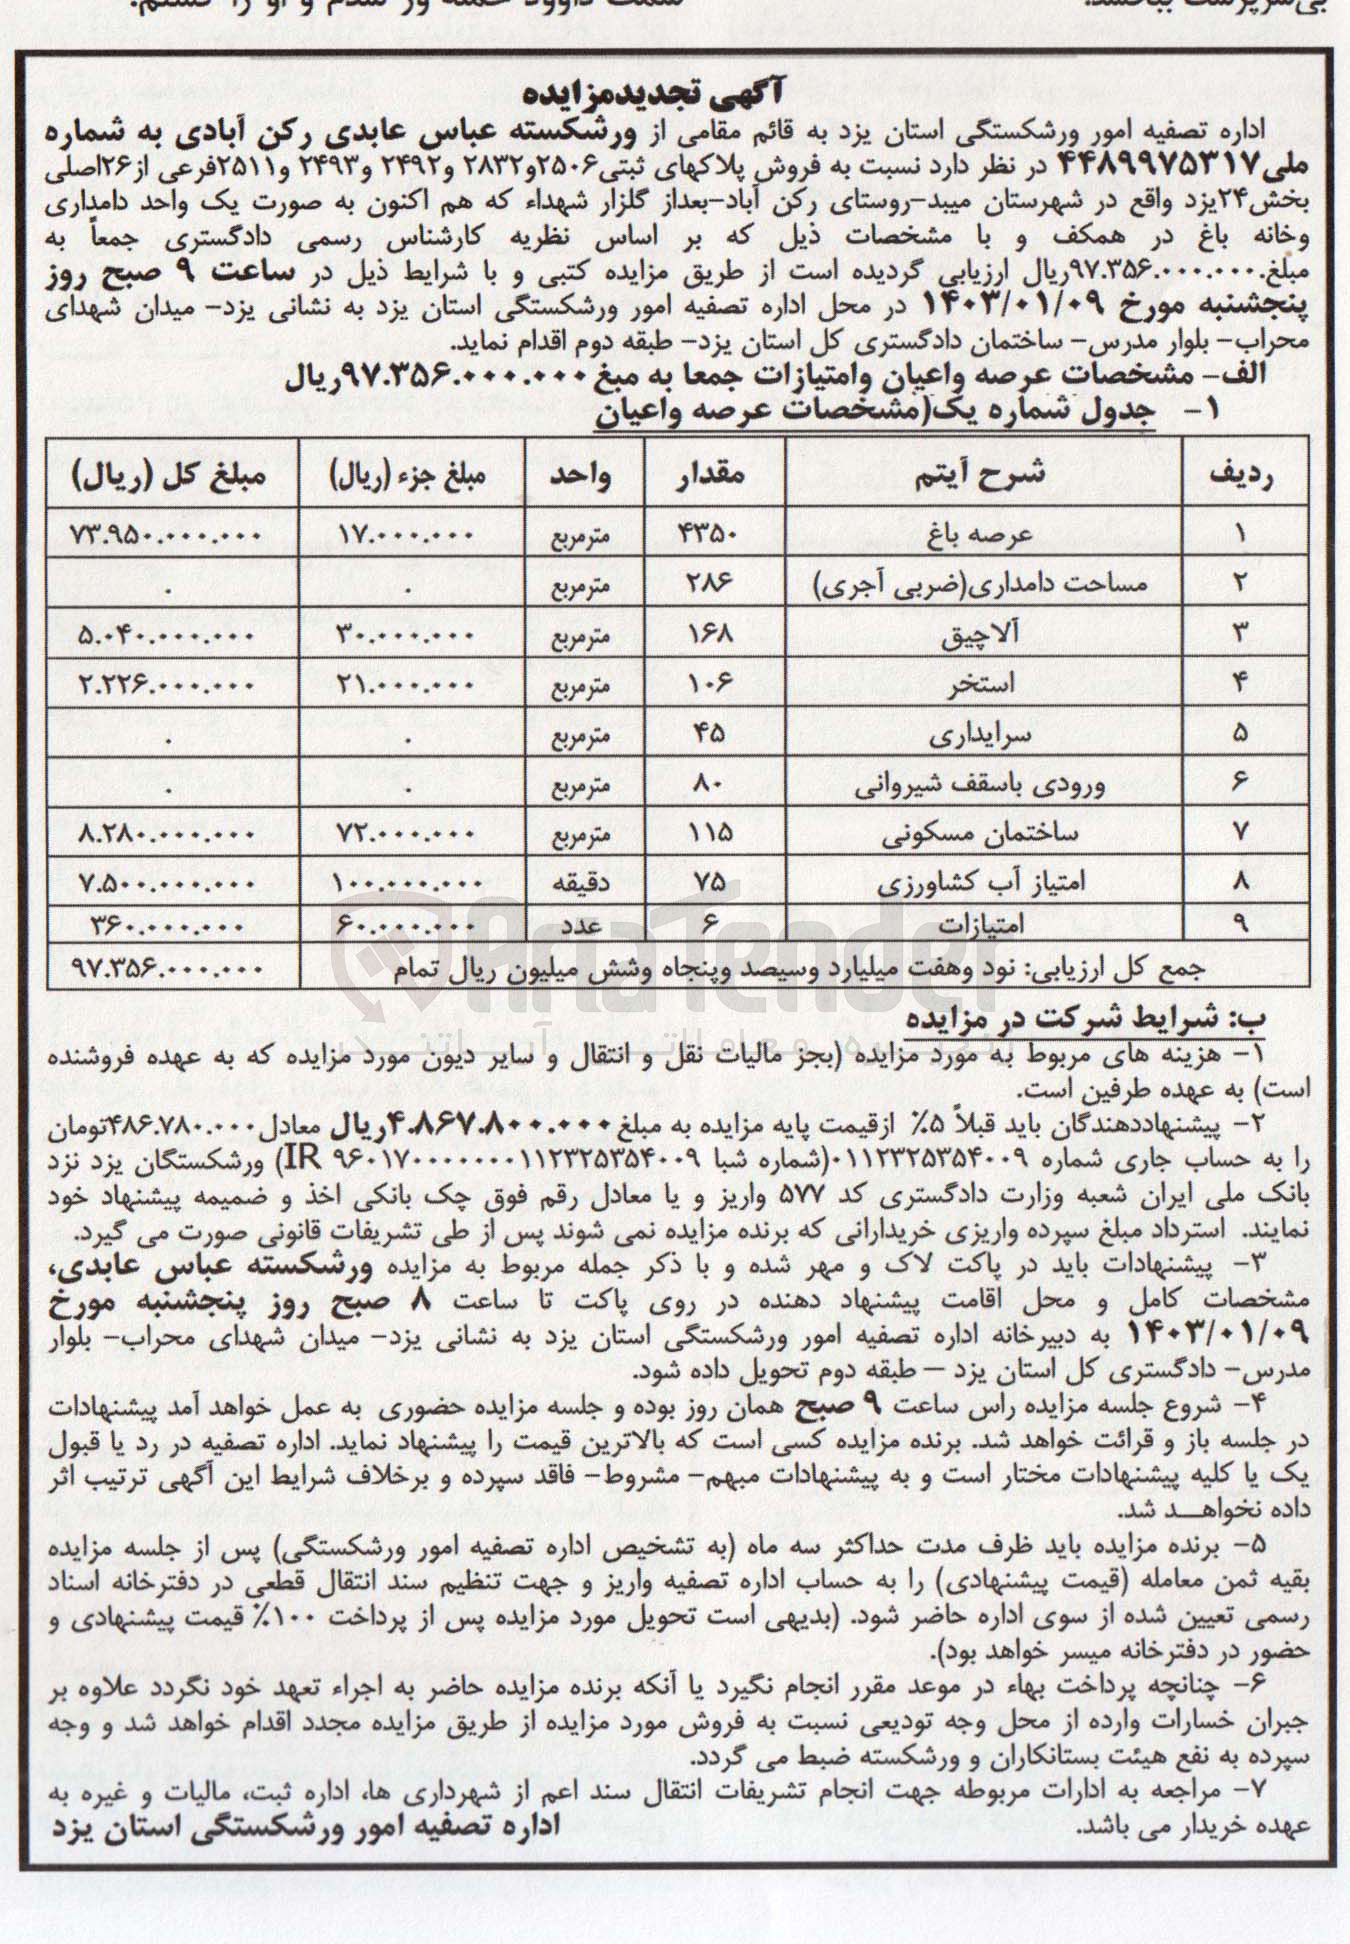 آگهی تجدیدمزایده
اداره تصفیه امور ورشکستگی استان یزد به قائم مقامی از ورشکسته عباس عابدی رکن آبادی به شماره
ملی۴۴۸۹۹۷۵۳۱۷ در نظر دارد نسبت به فروش پلاکهای ثبتی۲۵۰۶و۲۸۳۲ و۲۴۹۲ و۲۴۹۳ و۲۵۱۱فرعی از۲۶اصلی
بخش۲۴یزد واقع در شهرستان میبد-روستای رکن آباد-بعداز گلزار شهداء که هم اکنون به صورت یک واحد دامداری
وخانه باغ در همکف و با مشخصات ذیل که بر اساس نظریه کارشناس رسمی دادگستری جمعاً به
مبلغ۹۷.۳۵۶.۰۰۰.۰۰۰ریال ارزیابی گردیده است از طریق مزایده کتبی و با شرایط ذیل در ساعت ۹ صبح روز
پنجشنبه مورخ ۱۴۰۳/۰۱/۰۹ در محل اداره تصفیه امور ورشکستگی استان یزد به نشانی یزد- میدان شهدای
محراب- بلوار مدرس- ساختمان دادگستری کل استان یزد- طبقه دوم اقدام نماید.
الف- مشخصات عرصه واعیان وامتیازات جمعا به مبغ ۹۷.۳۵۶.۰۰۰.۰۰۰ریال
۱- جدول شماره یک(مشخصات عرصه واعیان
ردیف شرح آیتم مقدار واحد مبلغ جزء (ریال) مبلغ کل (ریال)
۱ عرصه باغ ۴۳۵۰ مترمربع ۱۷.۰۰۰.۰۰۰ ۷۳.۹۵۰.۰۰۰.۰۰۰
۲ مساحت دامداری(ضربی آجری) ۲۸۶ مترمربع ۰ ۰
۳ آلاچیق ۱۶۸ مترمربع ۳۰.۰۰۰.۰۰۰ ۵.۰۴۰.۰۰۰.۰۰۰
۴ استخر ۱۰۶ مترمربع ۲۱.۰۰۰.۰۰۰ ۲.۲۲۶.۰۰۰.۰۰۰
۵ سرایداری ۴۵ مترمربع ۰ ۰
۶ ورودی باسقف شیروانی ۸۰ مترمربع ۰ ۰
۷ ساختمان مسکونی ۱۱۵ مترمربع ۷۲.۰۰۰.۰۰۰ ۸.۲۸۰.۰۰۰.۰۰۰
۸ امتیاز آب کشاورزی ۷۵ دقیقه ۱۰۰.۰۰۰.۰۰۰ ۷.۵۰۰.۰۰۰.۰۰۰
۹ امتیازات ۶ عدد ۶۰.۰۰۰.۰۰۰ ۳۶۰.۰۰۰.۰۰۰
جمع کل ارزیابی: نود وهفت میلیارد وسیصد وپنجاه وشش میلیون ریال تمام ۹۷.۳۵۶.۰۰۰.۰۰۰
AriaTender
ب: شرایط شرکت در مزایده
۱- هزینه های مربوط به مورد مزایده (بجز مالیات نقل و انتقال و سایر دیون مورد مزایده که به عهده فروشنده
است) به عهده طرفین است.
۲- پیشنهاددهندگان باید قبلاً ۵٪ ازقیمت پایه مزایده به مبلغ۴.۸۶۷.۸۰۰.۰۰۰ریال معادل۴۸۶.۷۸۰.۰۰۰تومان
را به حساب جاری شماره ۰۱۱۲۳۲۵۳۵۴۰۰۹(شماره شبا IR ۹۶۰۱۷۰۰۰۰۰۰۰۱۱۲۳۲۵۳۵۴۰۰۹) ورشکستگان یزد نزد
بانک ملی ایران شعبه وزارت دادگستری کد ۵۷۷ واریز و یا معادل رقم فوق چک بانکی اخذ و ضمیمه پیشنهاد خود
نمایند. استرداد مبلغ سپرده واریزی خریدارانی که برنده مزایده نمی شوند پس از طی تشریفات قانونی صورت می گیرد.
۳- پیشنهادات باید در پاکت لاک و مهر شده و با ذکر جمله مربوط به مزایده ورشکسته عباس عابدی،
مشخصات کامل و محل اقامت پیشنهاد دهنده در روی پاکت تا ساعت ۸ صبح روز پنجشنبه مورخ
۱۴۰۳/۰۱/۰۹ به دبیرخانه اداره تصفیه امور ورشکستگی استان یزد به نشانی یزد- میدان شهدای محراب- بلوار
مدرس- دادگستری کل استان یزد – طبقه دوم تحویل داده شود.
۴- شروع جلسه مزایده راس ساعت ۹ صبح همان روز بوده و جلسه مزایده حضوری به عمل خواهد آمد پیشنهادات
در جلسه باز و قرائت خواهد شد. برنده مزایده کسی است که بالاترین قیمت را پیشنهاد نماید. اداره تصفیه در رد یا قبول
یک یا کلیه پیشنهادات مختار است و به پیشنهادات مبهم- مشروط- فاقد سپرده و برخلاف شرایط این آگهی ترتیب اثر
داده نخواهـــد شد.
۵- برنده مزایده باید ظرف مدت حداکثر سه ماه (به تشخیص اداره تصفیه امور ورشکستگی) پس از جلسه مزایده
بقیه ثمن معامله (قیمت پیشنهادی) را به حساب اداره تصفیه واریز و جهت تنظیم سند انتقال قطعی در دفترخانه اسناد
رسمی تعیین شده از سوی اداره حاضر شود. (بدیهی است تحویل مورد مزایده پس از پرداخت ۱۰۰٪ قیمت پیشنهادی و
حضور در دفترخانه میسر خواهد بود).
۶- چنانچه پرداخت بهاء در موعد مقرر انجام نگیرد یا آنکه برنده مزایده حاضر به اجراء تعهد خود نگردد علاوه بر
جبران خسارات وارده از محل وجه تودیعی نسبت به فروش مورد مزایده از طریق مزایده مجدد اقدام خواهد شد و وجه
سپرده به نفع هیئت بستانکاران و ورشکسته ضبط می گردد.
۷- مراجعه به ادارات مربوطه جهت انجام تشریفات انتقال سند اعم از شهرداری ها، اداره ثبت، مالیات و غیره به
عهده خریدار می باشد. اداره تصفیه امور ورشکستگی استان یزد